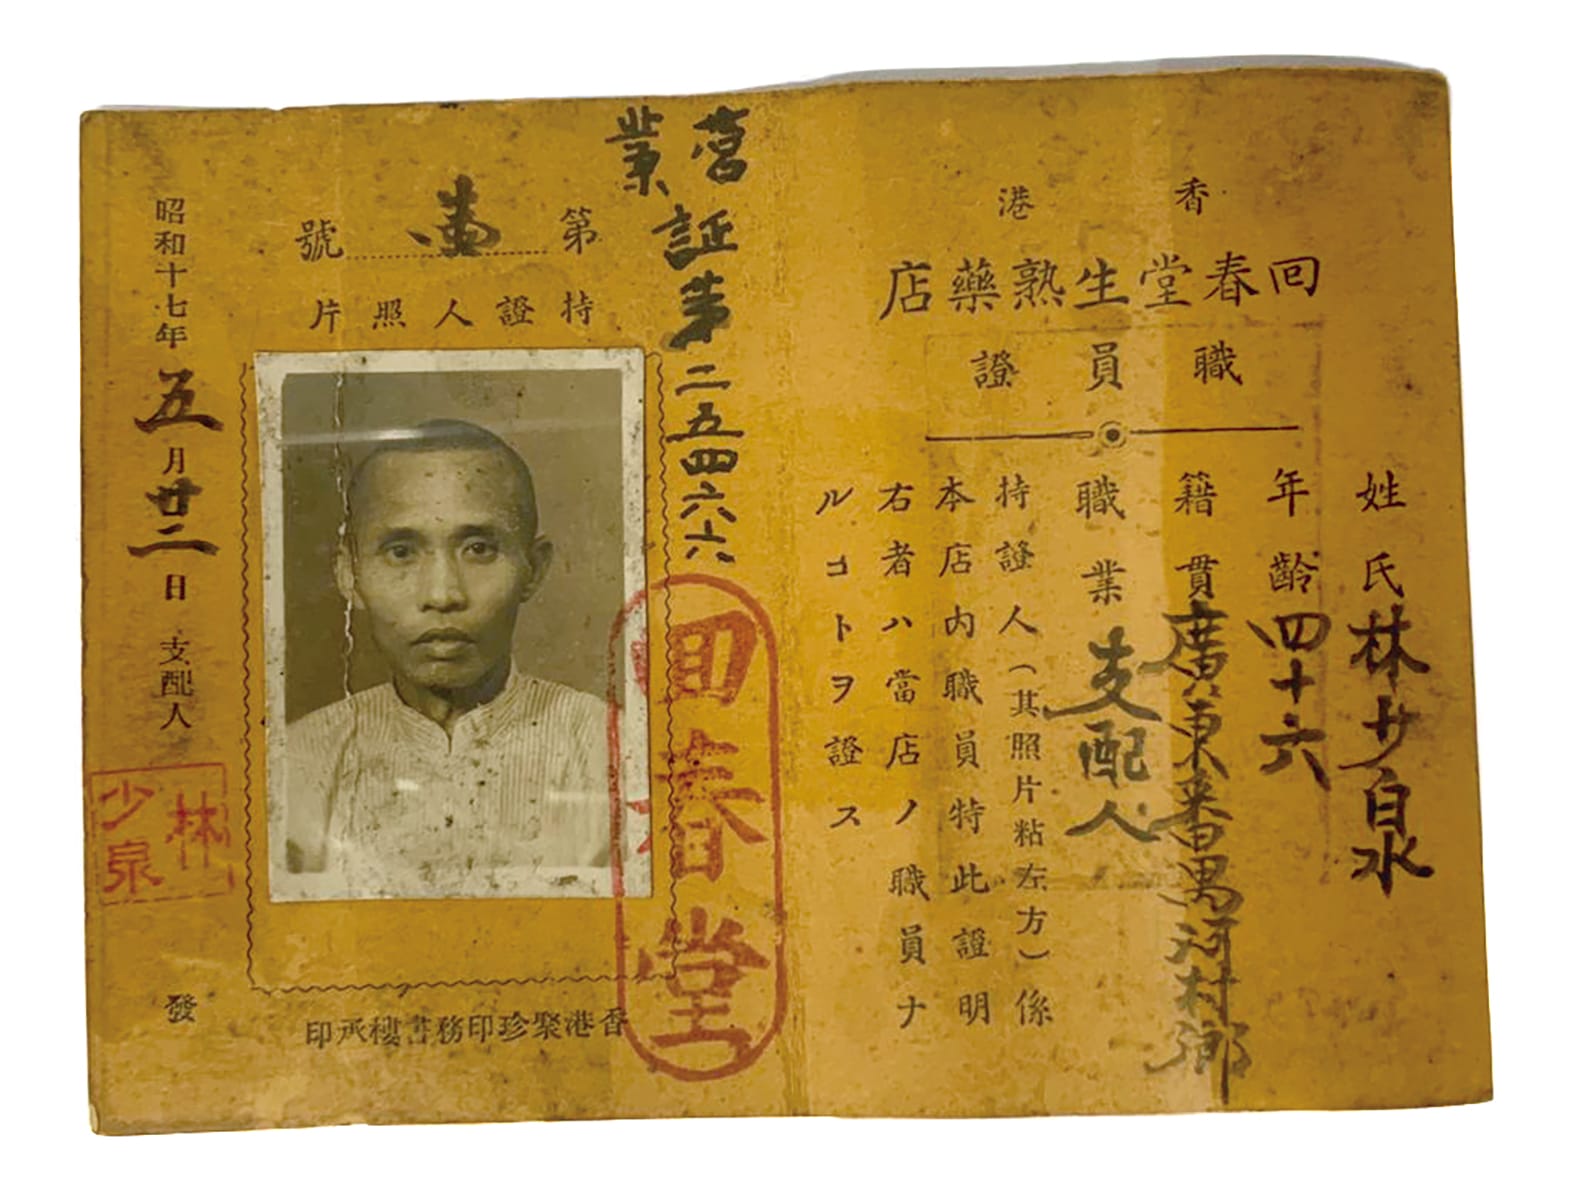 香港
回春堂生熟藥店
職員證
姓氏林少泉
年齡四十六
籍貫廣東番禺河村鄉
職業支配人
持證人（其照片粘左方）係
本店内職員特此證明
右者ハ當店ノ職員ナ
ルコトヲ證ス
營業証第二五四六六
回春堂
第壹號
持證人照片
香港聚珍印務書樓承印
昭和十七年五月廿二日支配人
林少泉
發